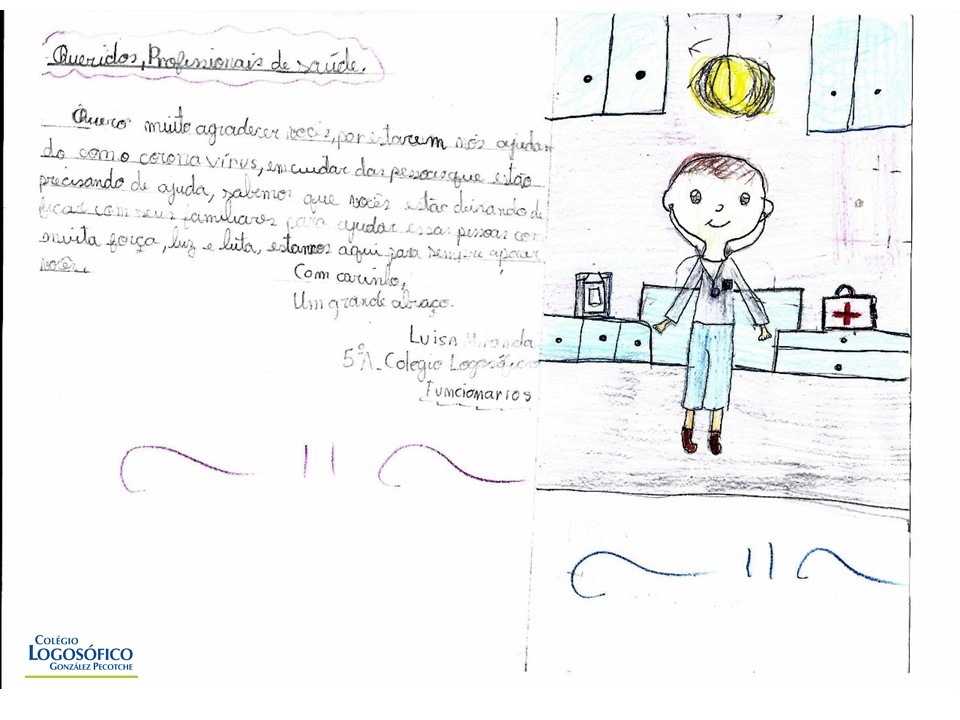 Queridos, Profissionais de saúde.
Quero muito agradecer vocês, por estarem nós ajudan
do com o corona vírus, em cuidar das pessoas que estão
precisando de ajuda, sabemos que vocês estão deixando de
ficar com seus familiares para ajudar essas pessoas com
muita força, luz e luta, estamos aqui para sempre apoiar
vocês.
Com carinho,
Um grande abraço.
Luisa Miranda
5ºA - Colegio Logosófico
Funcionarios
COLÉGIO
LOGOSÓFICO
GONZÁLEZ PECOTCHE